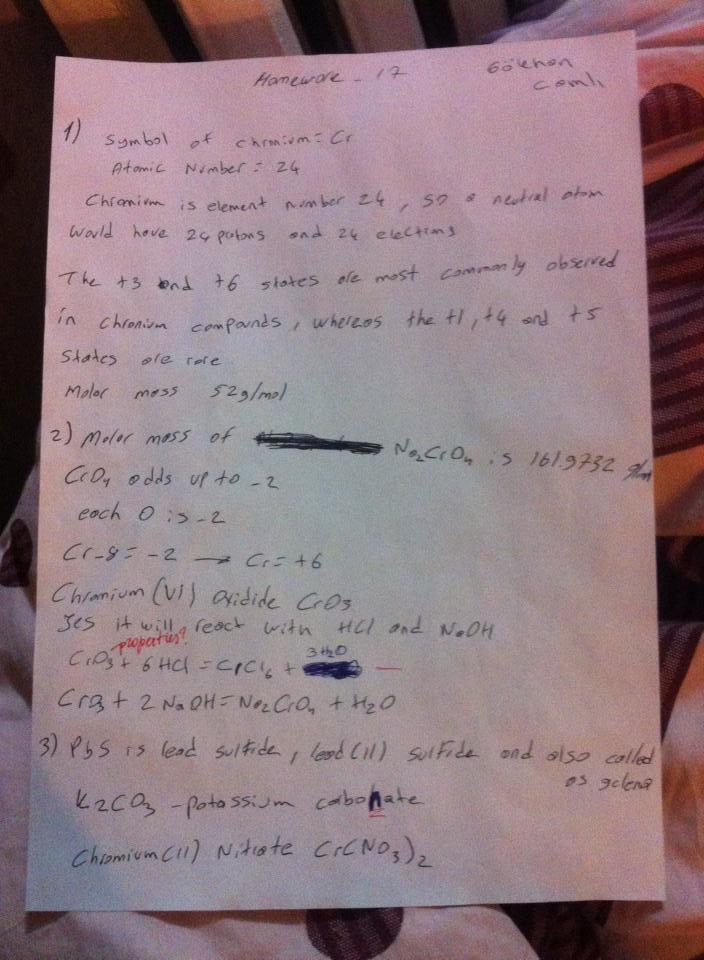 Homework - 17
Gökhan
Camlı
1) Symbol of chromium = Cr
Atomic Number = 24
Chromium is element number 24, so a neutral atom
would have 24 protons and 24 electrons
The +3 and +6 states are most commonly observed
in chromium compounds, whereas the +1, +4 and +5
states are rare
Molar mass 52g/mol
2) Molar mass of Na2CrO4 is 161.9732
CrO4 adds up to -2
each O is -2
Cr-8 = -2 → Cr = +6
Chromium (VI) Oxidide CrO3
Yes it will react with HCl and NaOH
properties?
CrO3 + 6HCl = CrCl6 + 3H2O
CrO3 + 2NaOH = Na2CrO4 + H2O
3) PbS is lead sulfide, lead(II) sulfide and also called
as galena
K2CO3 - potassium carbonate
Chromium(II) Nitrate Cr(NO3)2